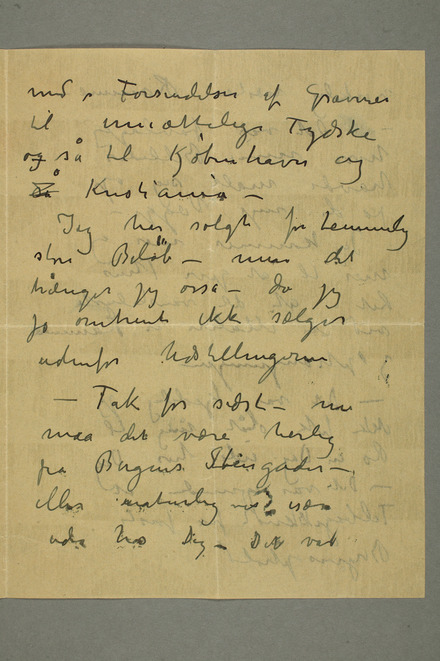 med, Forsendelser af Gravurer
til umættelige Tydske
og så til Kjøbenhavn og
Kristiania –
Jeg har solgt for temmelig
store Beløb – men det
trænges jeg også – da jeg
jo omtrent ikk sælger
udenfor Udstillingerne
– Tak for sidst – nu
maa det være herlig
fra Bergens Stengader –
eller naturlig vis især
ude hos Dig – Det var